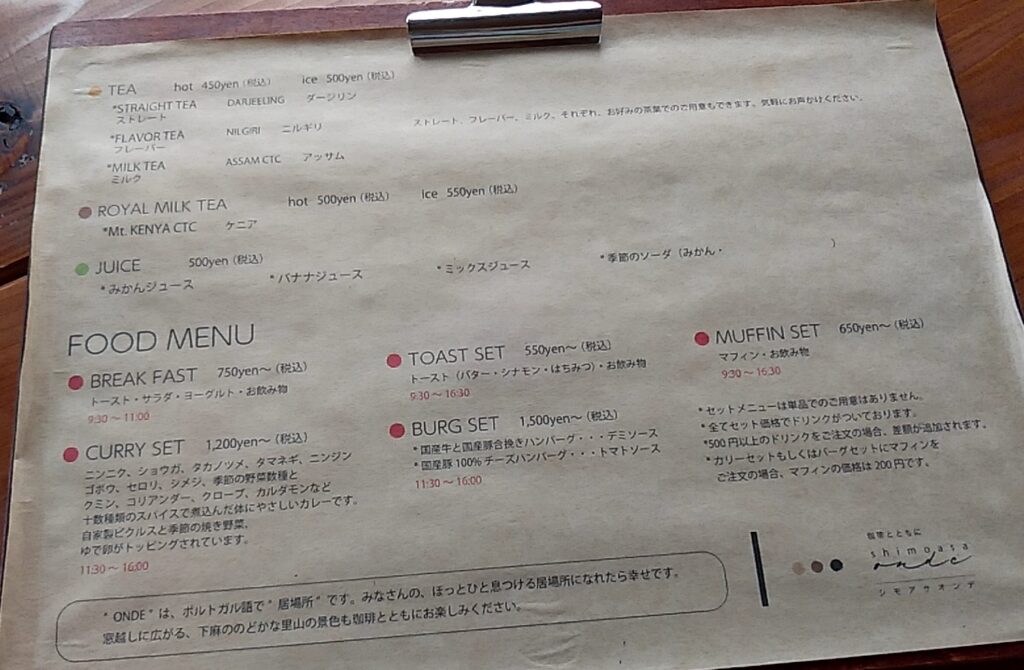 TEA hot 450yen (税込) ice 500yen (税込)
*STRAIGHT TEA DARJEELING ダージリン
ストレート
*FLAVOR TEA NILGIRI ニルギリ
フレーバー
*MILK TEA ASSAM CTC アッサム
ミルク
ストレート、フレーバー、ミルク、それぞれ、お好みの茶葉でのご用意もできます。気軽にお声かけください。
ROYAL MILK TEA hot 500yen (税込) ice 550yen (税込)
*Mt. KENYA CTC ケニア
JUICE 500yen (税込)
*みかんジュース *バナナジュース *ミックスジュース *季節のソーダ(みかん・ )
FOOD MENU
BREAK FAST 750yen〜(税込)
トースト・サラダ・ヨーグルト・お飲み物
9:30 〜 11:00
TOAST SET 550yen〜(税込)
トースト(バター・シナモン・はちみつ)・お飲み物
9:30 〜 16:30
MUFFIN SET 650yen〜(税込)
マフィン・お飲み物
9:30 〜 16:30
CURRY SET 1,200yen〜(税込)
ニンニク、ショウガ、タカノツメ、タマネギ、ニンジン
ゴボウ、セロリ、シメジ、季節の野菜数種と
クミン、コリアンダー、クローブ、カルダモンなど
十数種類のスパイスで煮込んだ体にやさしいカレーです。
自家製ピクルスと季節の焼き野菜、
ゆで卵がトッピングされています。
11:30 〜 16:00
BURG SET 1,500yen〜(税込)
*国産牛と国産豚合挽きハンバーグ・・・デミソース
*国産豚100%チーズハンバーグ・・・トマトソース
11:30 〜 16:00
*セットメニューは単品でのご用意はありません。
*全てセット価格でドリンクがついております。
*500円以上のドリンクをご注文の場合、差額が追加されます。
*カリーセットもしくはバーグセットにマフィンを
ご注文の場合、マフィンの価格は200円です。
"ONDE"は、ポルトガル語で"居場所"です。みなさんの、ほっとひと息つける居場所になれたら幸せです。
窓越しに広がる、下麻ののどかな里山の景色も珈琲とともにお楽しみください。
珈琲とともに
shimoasa
onde
シモアサオンデ